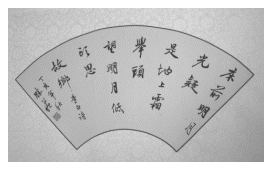 床前明
光疑
是地上霜
舉頭
望明月低
頭思
故鄉 李白詩